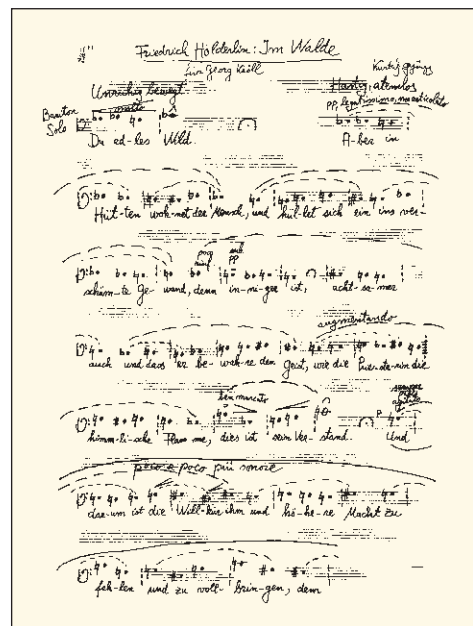 Friedrich Hölderlin: Im Walde
für Georg Kröll
Kurtág György
Unruhig bewegt
Hastig, atemlos
molto
pp, leggerissimo, ma articolato
Bariton
Solo
Du ed-les Wild.
A-ber in
Hüt-ten woh-net der Mensch, und hül-let sich ein ins ver-
poco
sub.
pp
schäm-te Ge-wand, denn in-ni-ger ist, acht-sa-mer
augmentando
auch und dass er be-wah-re den Geist, wie die Prie-ste-rin die
ben marcato
sempre
p
himm-li-sche Flam-me, dies ist sein Ver-stand. Und
poco a poco più sonore
dar-um ist die Will-kür ihm und hö-he-re Macht zu
feh-len und zu voll-brin-gen, dem